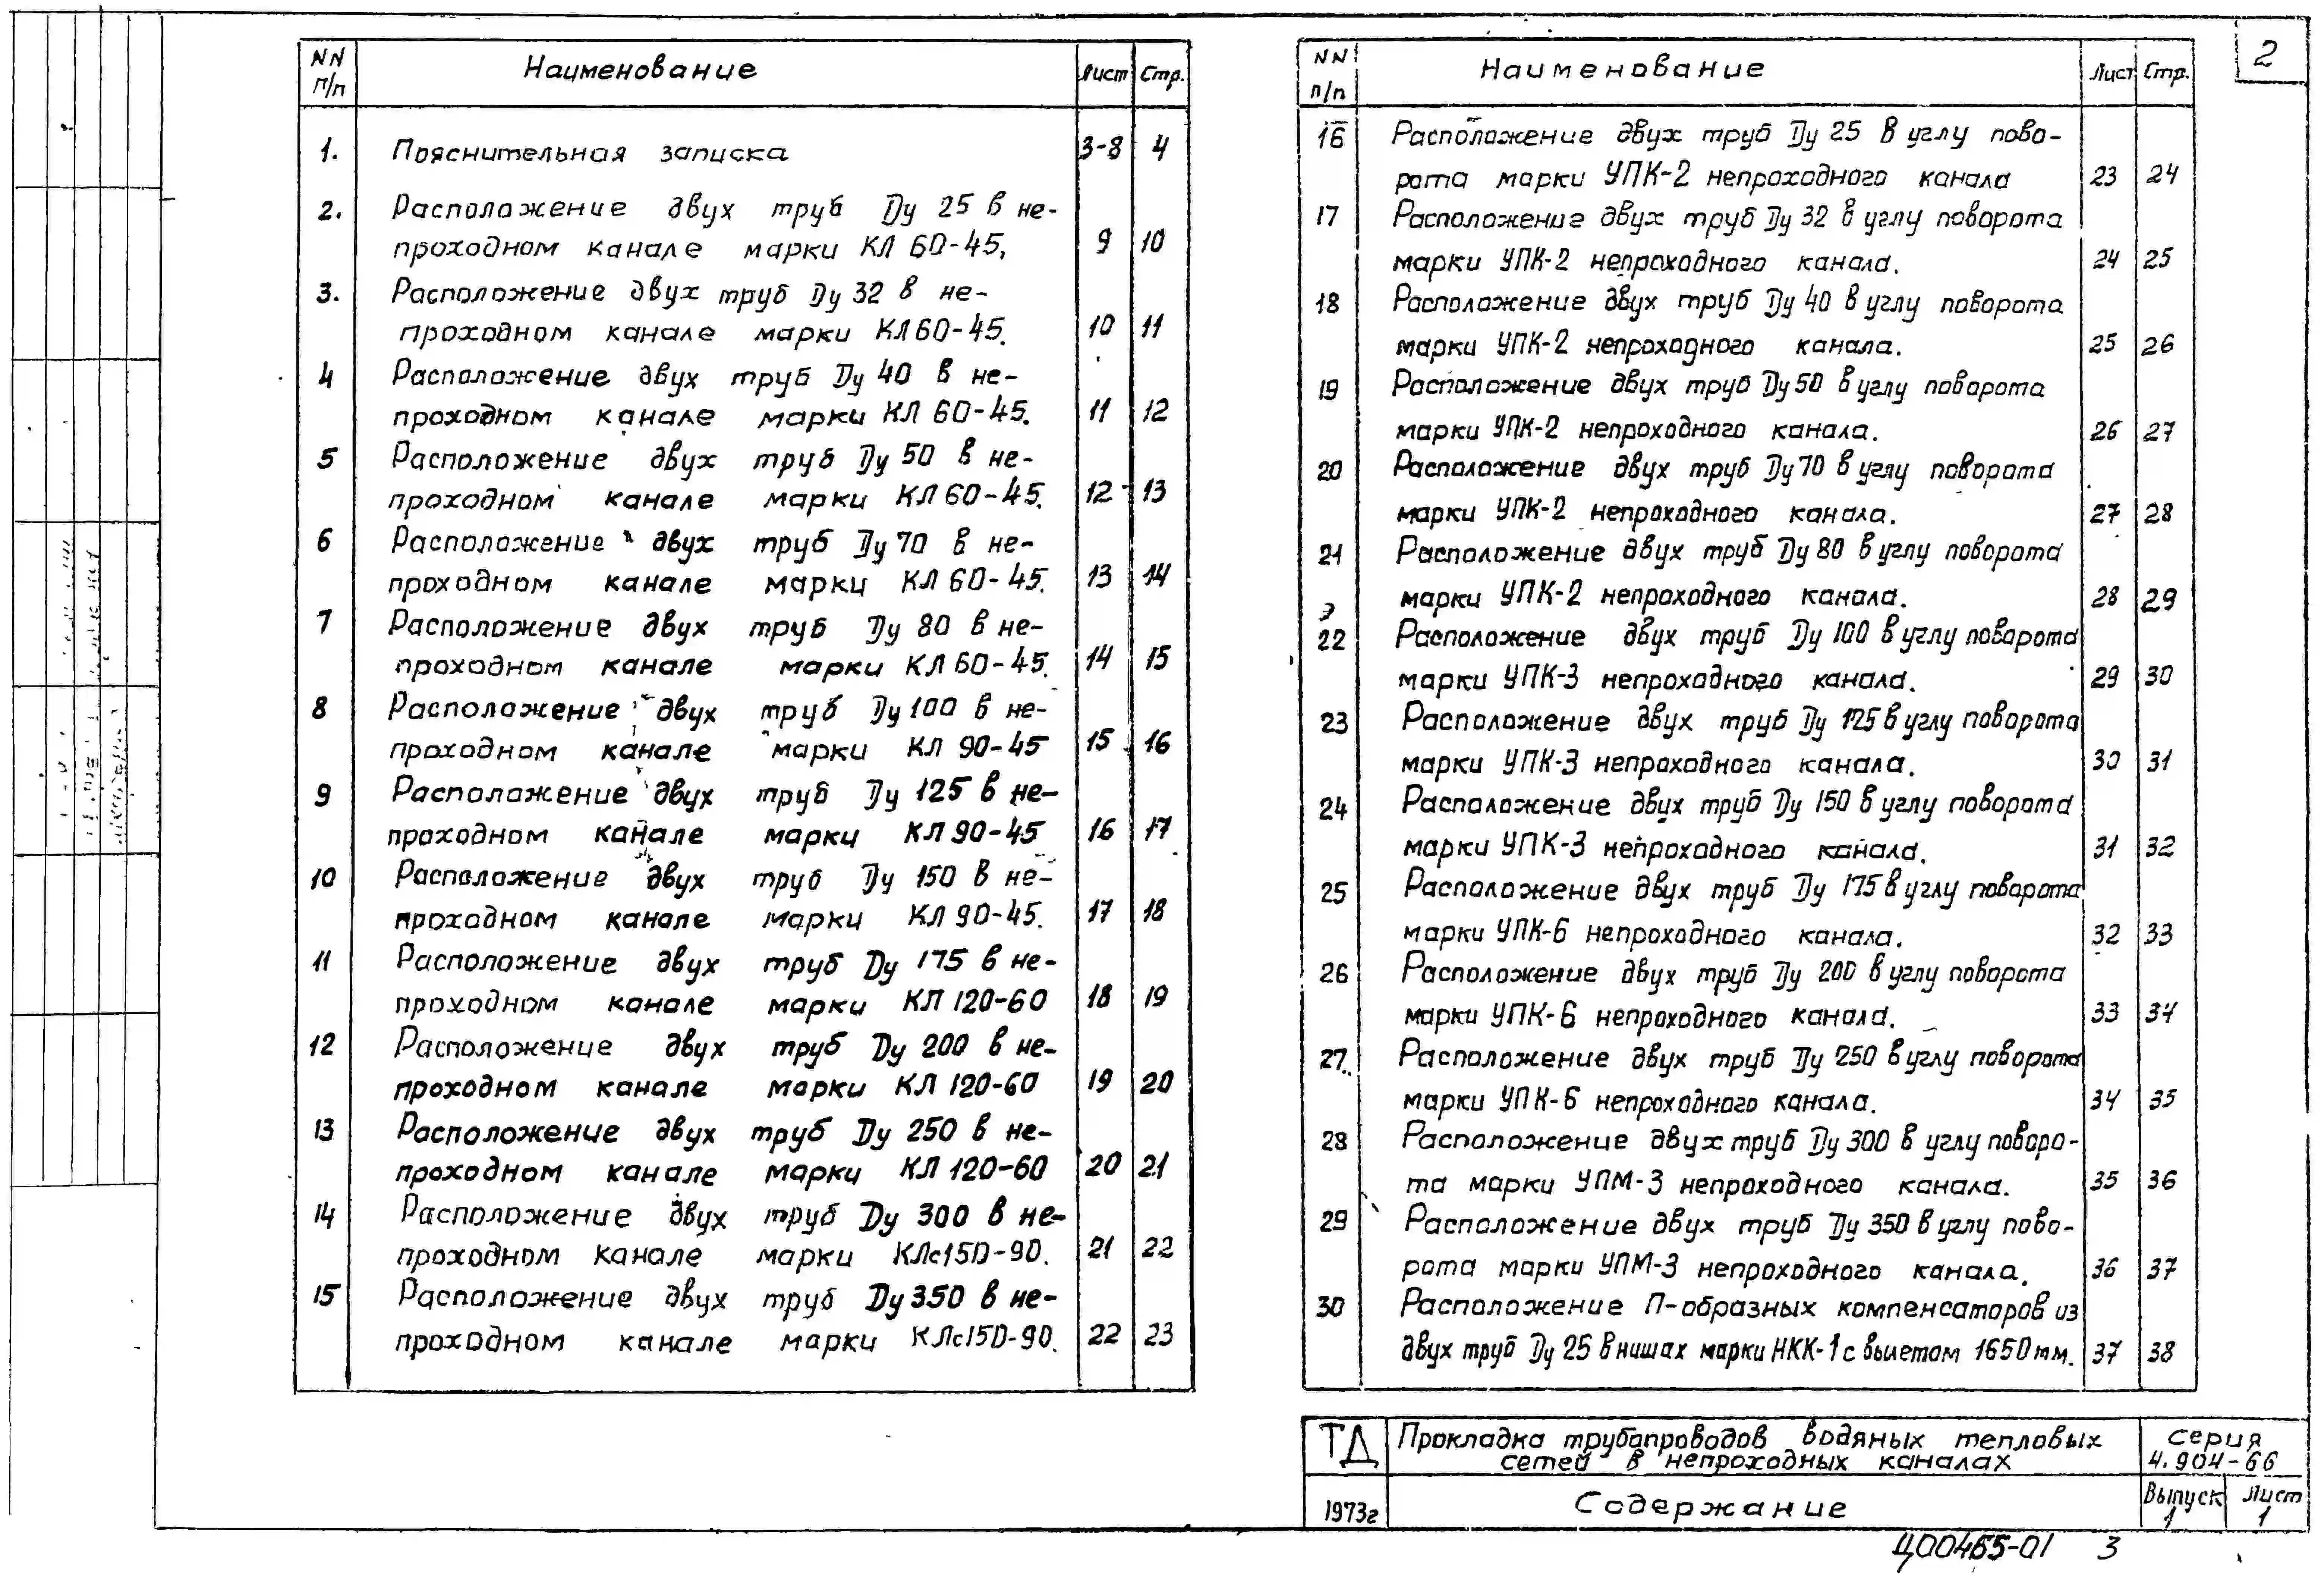 2
NN п/п Наименование Лист Стр.
1. Пояснительная записка 3-8 4
2. Расположение двух труб Ду 25 в не-
проходном канале марки КЛ 60-45. 9 10
3. Расположение двух труб Ду 32 в не-
проходном канале марки КЛ 60-45. 10 11
4 Расположение двух труб Ду 40 в не-
проходном канале марки КЛ 60-45. 11 12
5 Расположение двух труб Ду 50 в не-
проходном канале марки КЛ 60-45. 12 13
6 Расположение двух труб Ду 70 в не-
проходном канале марки КЛ 60-45. 13 14
7 Расположение двух труб Ду 80 в не-
проходном канале марки КЛ 60-45. 14 15
8 Расположение двух труб Ду 100 в не-
проходном канале марки КЛ 90-45 15 16
9 Расположение двух труб Ду 125 в не-
проходном канале марки КЛ 90-45 16 17
10 Расположение двух труб Ду 150 в не-
проходном канале марки КЛ 90-45. 17 18
11 Расположение двух труб Ду 175 в не-
проходном канале марки КЛ 120-60 18 19
12 Расположение двух труб Ду 200 в не-
проходном канале марки КЛ 120-60 19 20
13 Расположение двух труб Ду 250 в не-
проходном канале марки КЛ 120-60 20 21
14 Расположение двух труб Ду 300 в не-
проходном канале марки КЛс150-90. 21 22
15 Расположение двух труб Ду 350 в не-
проходном канале марки КЛс150-90. 22 23
NN п/п Наименование Лист Стр.
16 Расположение двух труб Ду 25 в углу пово-
рота марки УПК-2 непроходного канала 23 24
17 Расположение двух труб Ду 32 в углу поворота
марки УПК-2 непроходного канала. 24 25
18 Расположение двух труб Ду 40 в углу поворота
марки УПК-2 непроходного канала. 25 26
19 Расположение двух труб Ду 50 в углу поворота
марки УПК-2 непроходного канала. 26 27
20 Расположение двух труб Ду 70 в углу поворота
марки УПК-2 непроходного канала. 27 28
21 Расположение двух труб Ду 80 в углу поворота
марки УПК-2 непроходного канала. 28 29
22 Расположение двух труб Ду 100 в углу поворота
марки УПК-3 непроходного канала. 29 30
23 Расположение двух труб Ду 125 в углу поворота
марки УПК-3 непроходного канала. 30 31
24 Расположение двух труб Ду 150 в углу поворота
марки УПК-3 непроходного канала. 31 32
25 Расположение двух труб Ду 175 в углу поворота
марки УПК-6 непроходного канала. 32 33
26 Расположение двух труб Ду 200 в углу поворота
марки УПК-6 непроходного канала. 33 34
27. Расположение двух труб Ду 250 в углу поворота
марки УПК-6 непроходного канала. 34 35
28 Расположение двух труб Ду 300 в углу поворо-
та марки УПМ-3 непроходного канала. 35 36
29 Расположение двух труб Ду 350 в углу пово-
рота марки УПМ-3 непроходного канала. 36 37
30 Расположение П-образных компенсаторов из
двух труб Ду 25 в нишах марки НКК-1 с вылетом 1650мм. 37 38
ТД Прокладка трубопроводов водяных тепловых
сетей в непроходных каналах
серия
4.904-66
1973г Содержание
Выпуск 1
Лист 1
Ц00465-01 3